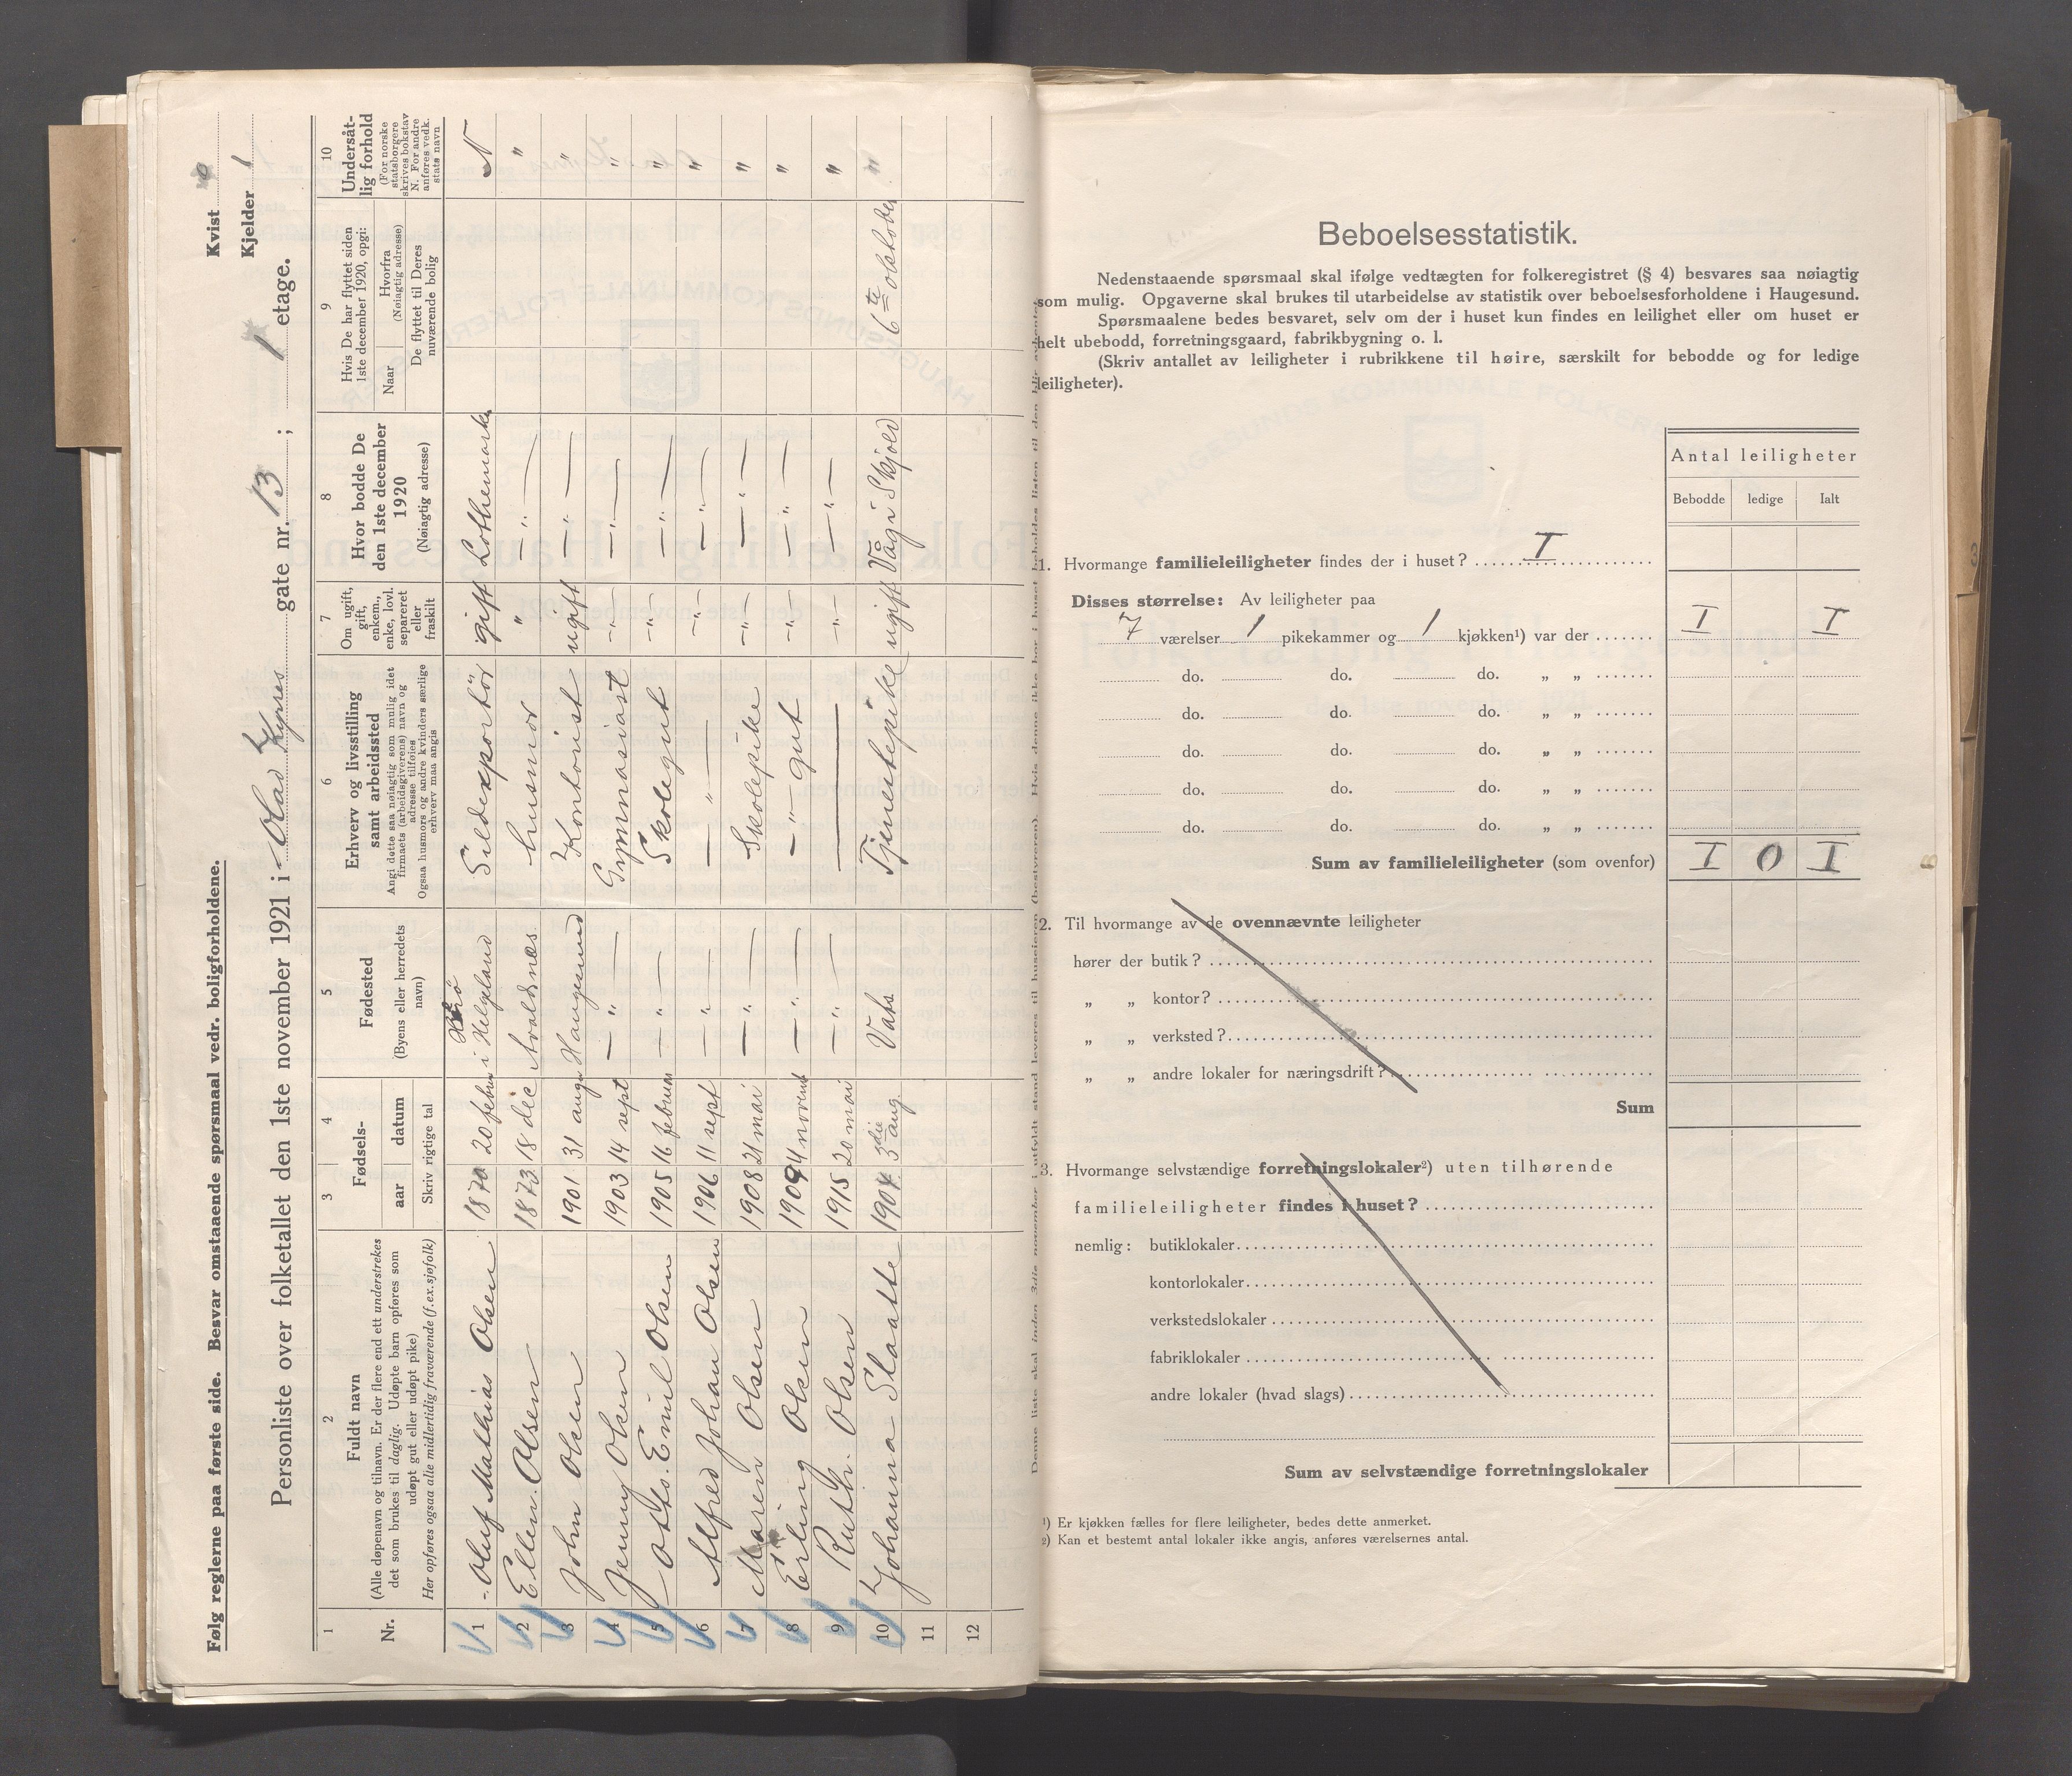 Følg reglerne paa første side. Besvar omstaaende spørsmaal vedr. boligforholdene.
Kvist 0
Kjelder 1
Personliste over folketallet den 1ste november 1921 i Olav Kyrres gate nr. 13 ; 1 etage.
1 2 3 4 5 6 7 8 9 10
Nr.
Fuldt navn
(Alle døpenavn og tilnavn. Er der flere end ett understrekes
det som brukes til daglig. Udøpte barn opføres som
udøpt gut eller udøpt pike)
Her opføres ogsaa alle midlertidig fraværende (f.ex.sjøfolk)
Fødsels-
aar datum
Skriv rigtige tal
Fødested
(Byens eller herredets
navn)
Erhverv og livsstilling
samt arbeidssted
Angi dette saa nøiagtig som mulig idet
firmaets (arbeidsgiverens) navn og
adresse tilføies
Ogsaa husmors og andre kvinders særlige
erhverv maa angis
Om ugift,
gift,
enkem.,
enke, lovl.
separeret
eller
fraskilt
Hvor bodde De
den 1ste december
1920
(Nøiagtig adresse)
Hvis De har flyttet siden
1ste december 1920, opgi:
Naar
Hvorfra
(Nøiagtig adresse)
De flyttet til Deres
nuværende bolig
Undersåt-
lig forhold
(For norske
statsborgere
skrives bokstav
N. For andre
anføres vedk.
stats navn
1 Oluf Mathias Olsen 1870 20 febru i Helgeland Sildexportör gift Lothemarka N
2 Ellen Olsen 1873 18 dec Avaldsnæs husmor " —"— "
3 John Olsen 1901 31 augu Haugesund Kontorist ugift —"— "
4 Jenny Olsen 1903 14 sept —"— Gymnasiast —"— —"— "
5 Otto Emil Olsen 1905 16 februar —"— Skolegut —"— —"— "
6 Alfred Johan Olsen 1906 11 sept —"— —"— —"— —"— "
7 Maren Olsen 1908 21 mai —"— Skolepike —"— —"— "
8 Erling Olsen 1909 4 novemb —"— —"— gut —"— —"— "
9 Ruth Olsen 1915 20 mai —"— —— —"— —"— "
10 Johanna Slaatte 1904 3die aug. Vats Tjenestepike ugift Våg i Skjold 6te oktober "
11
12
Beboelsesstatistik.
Nedenstaaende spørsmaal skal ifølge vedtægten for folkeregistret (§ 4) besvares saa nøiagtig
som mulig. Opgaverne skal brukes til utarbeidelse av statistik over beboelsesforholdene i Haugesund.
Spørsmaalene bedes besvaret, selv om der i huset kun findes en leilighet eller om huset er
helt ubebodd, forretningsgaard, fabrikbygning o. l.
(Skriv antallet av leiligheter i rubrikkene til høire, særskilt for bebodde og for ledige
leiligheter).
Antal leiligheter
Bebodde ledige Ialt
1. Hvormange familieleiligheter findes der i huset? I
Disses størrelse: Av leiligheter paa
7 værelser 1 pikekammer og 1 kjøkken¹) var der I I
do. do. do. „ „
do. do. do. „ „
do. do. do. „ „
do. do. do. „ „
do. do. do. „ „
Sum av familieleiligheter (som ovenfor) I 0 I
2. Til hvormange av de ovennævnte leiligheter
hører der butik?
„ „ kontor?
„ „ verksted?
„ „ andre lokaler for næringsdrift?
Sum
3. Hvormange selvstændige forretningslokaler²) uten tilhørende
familieleiligheter findes i huset?
nemlig: butiklokaler
kontorlokaler
verkstedslokaler
fabriklokaler
andre lokaler (hvad slags)
Sum av selvstændige forretningslokaler
¹) Er kjøkken fælles for flere leiligheter, bedes dette anmerket.
²) Kan et bestemt antal lokaler ikke angis, anføres værelsernes antal.